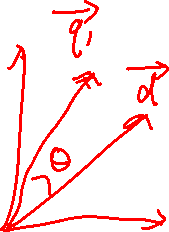 q₁
d
θ